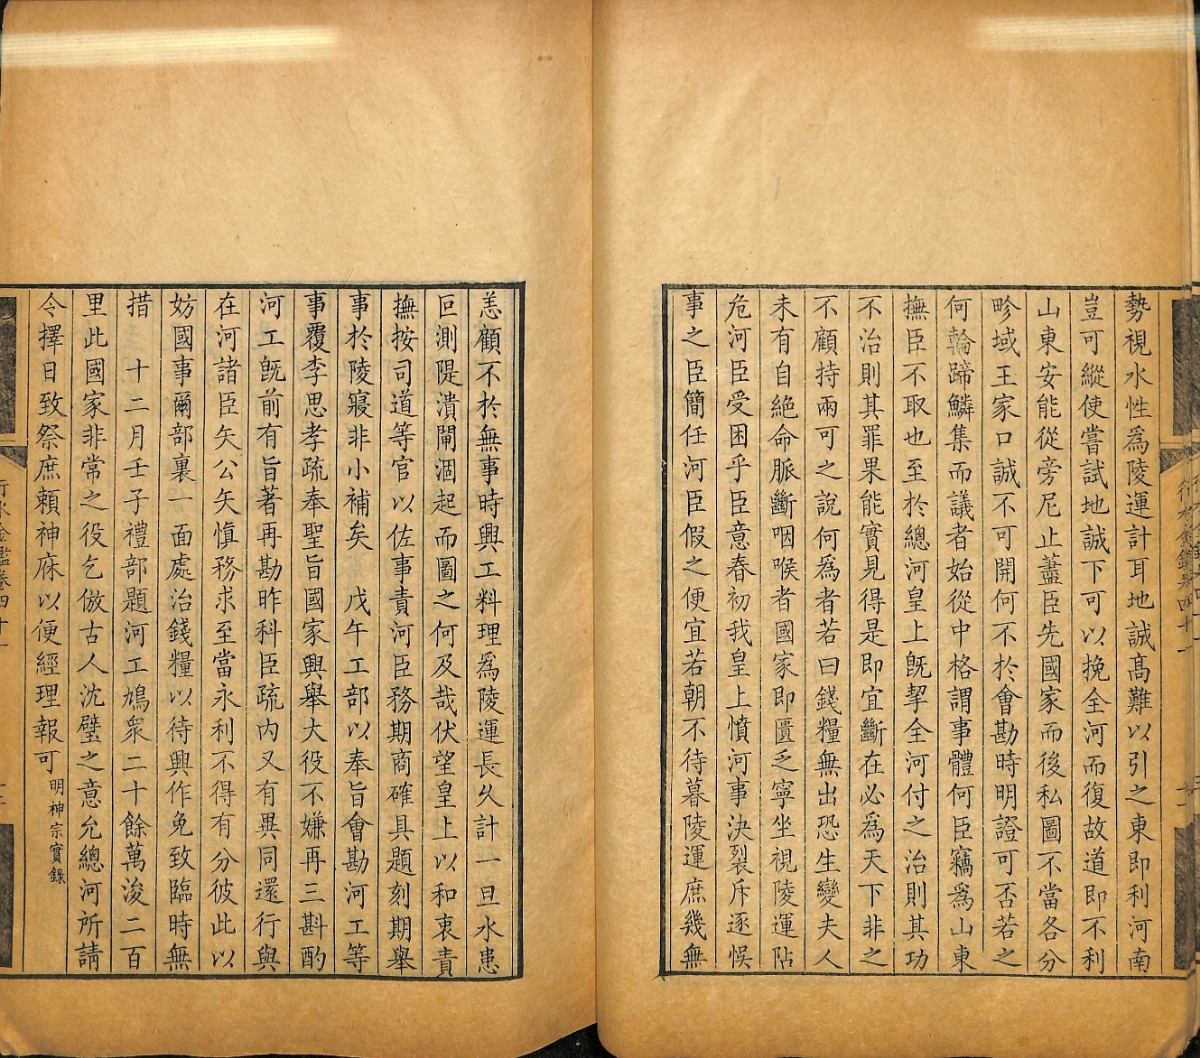 勢視水性爲陵運計耳地誠高難以引之東即利河南
豈可縱使嘗試地誠下可以挽全河而復故道即不利
山東安能從旁尼止藎臣先國家而後私圖不當各分
畛域王家口誠不可開何不於會勘時明證可否若之
何輪蹄鱗集而議者始從中格謂事體何臣竊爲山東
撫臣不取也至於總河皇上旣挈全河付之治則其功
不治則其罪果能實見得是即宜斷在必爲天下非之
不顧持兩可之說何爲者若曰錢糧無出恐生變夫人
未有自絕命脈斷咽喉者國家即匱乏寧坐視陵運阽
危河臣受困乎臣意春初我皇上憤河事決裂斥逐悞
事之臣簡任河臣假之便宜若朝不待暮陵運庶幾無
恙顧不於無事時興工料理爲陵運長久計一旦水患
叵測隄潰閘涸起而圖之何及哉伏望皇上以和衷責
撫按司道等官以佐事責河臣務期商確具題刻期舉
事於陵寢非小補矣 戊午工部以奉旨會勘河工等
事覆李思孝疏奉聖旨國家興舉大役不嫌再三斟酌
河工旣前有旨著再勘昨科臣疏內又有異同還行與
在河諸臣矢公矢慎務求至當永利不得有分彼此以
妨國事爾部裏一面處治錢糧以待興作免致臨時無
措 十二月壬子禮部題河工鳩衆二十餘萬浚二百
里此國家非常之役乞倣古人沈璧之意允總河所請
令擇日致祭庶賴神庥以便經理報可明神宗實錄
行水金鑑卷四十一